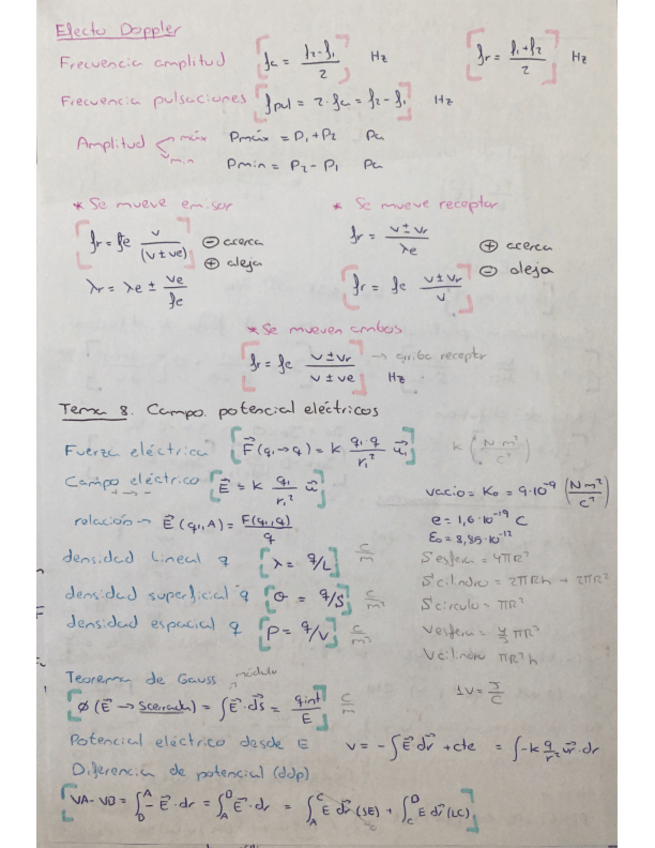 Efecto Doppler
Frecuencia amplitud [fa = (f2-f1)/2] Hz [fr = (f1+f2)/2] Hz
Frecuencia pulsaciones [fpul = 2·fa = f2-f1] Hz
Amplitud máx Pmáx = P1+P2 Pa
min Pmin = P2-P1 Pa
* Se mueve emisor
[fr = fe v/(v±ve)] ⊖ acerca
⊕ aleja
λr = λe ± ve/fe
* Se mueve receptor
fr = (v±vr)/λe ⊕ acerca
⊖ aleja
[fr = fe (v±vr)/v]
* Se mueven ambos
[fr = fe (v±vr)/(v±ve)] → arriba receptor
Hz
Tema 8. Campo. potencial eléctricos
Fuerza eléctrica [F⃗(q1→q) = k (q1·q)/r1² u⃗1] k (N·m²/C²)
Campo eléctrico [E⃗ = k q1/r1² u⃗] vacio = Ko = 9·10⁻⁹ (Nm²/C²)
+ → -
relación → E⃗(q1,A) = F(q1,q)/q e = 1,6·10⁻¹⁹ C
Eo = 8,85·10⁻¹²
densidad lineal q [λ = q/L] C/m S'esfera = 4πR²
S'cilindro = 2πRh + 2πR²
densidad superficial q [σ = q/S] C/m² S'circulo = πR²
densidad espacial q [ρ = q/V] C/m³ Vesfera = 4/3 πR³
Vcilindro πR²h
Teorema de Gauss módulo
1V = J/C
[Ø(E⃗ → Scerrada) = ∫E⃗·ds⃗ = qint/E] C/m
Potencial eléctrico desde E v = -∫E⃗dr⃗ + cte = ∫-k q/r² u⃗r·dr
Diferencia de potencial (ddp)
[VA-VB = ∫ᴬ_B -E⃗·dr = ∫ᴮ_A E⃗·dr = ∫ᶜ_A E dr⃗(SE) + ∫ᴮ_C E dr⃗(LC)]